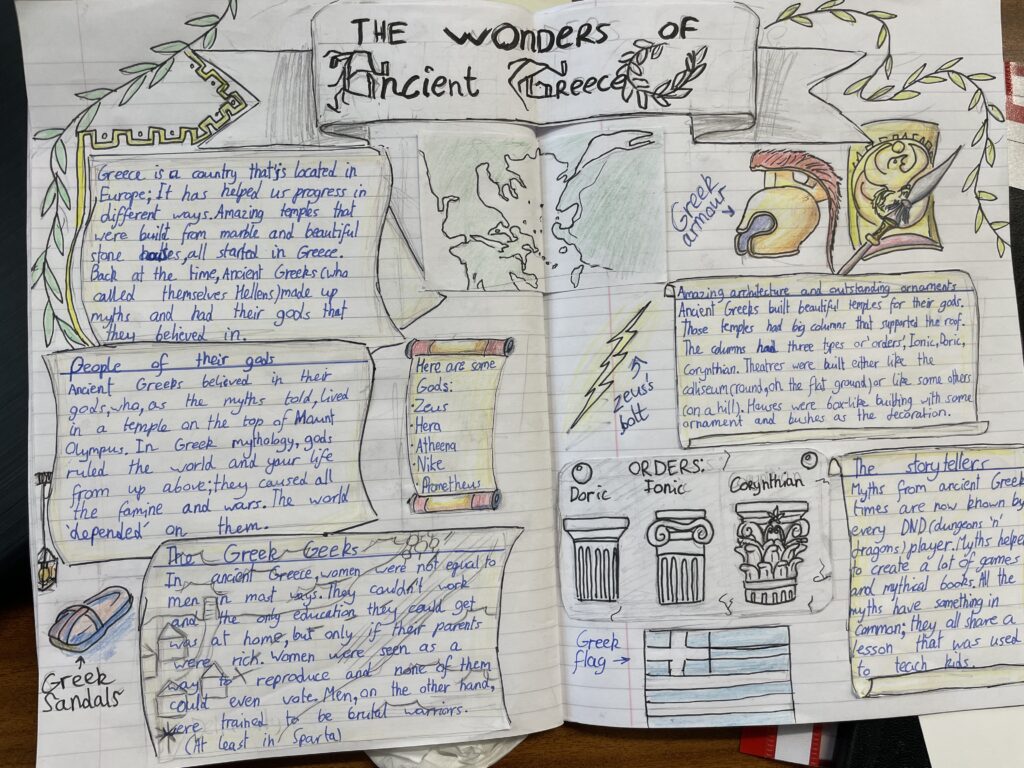 THE WONDERS OF
Ancient Greece
Greece is a country that's located in
Europe; It has helped us progress in
different ways. Amazing temples that
were built from marble and beautiful
stone houses, all started in Greece.
Back at the time, Ancient Greeks (who
called themselves Hellens) made up
myths and had their gods that
they believed in.
People of their gods
Ancient Greeks believed in their
gods, who, as the myths told, lived
in a temple on the top of Mount
Olympus. In Greek mythology, gods
ruled the world and your life
from up above; they caused all
the famine and wars. The world
'depended' on them.
Here are some
Gods:
·Zeus
·Hera
·Atheena
·Nike
·Prometheus
The Greek Geeks
In ancient Greece, women were not equal to
men in most ways. They couldn't work
and the only education they could get
was at home, but only if their parents
were rick. Women were seen as a
way to reproduce and none of them
could even vote. Men, on the other hand,
were trained to be brutal warriors.
(At least in Sparta)
Greek
Sandals
Greek
armour
Zeus's
bolt
Amazing architecture and outstanding ornaments
Ancient Greeks built beautiful temples for their gods.
Those temples had big columns that supported the roof.
The columns had three types or 'orders', Ionic, Doric,
Corynthian. Theatres were built either like the
colliseum (round, on the flat ground) or like some others
(on a hill). Houses were box-like building with some
ornament and bushes as the decoration.
ORDERS:
Doric Ionic Corynthian
Greek
flag
The storytellers
Myths from ancient Greek
times are now known by
every DND (dungeons 'n'
dragons) player. Myths helped
to create a lot of games
and mythical books. All the
myths have something in
common; they all share a
lesson that was used
to teach kids.